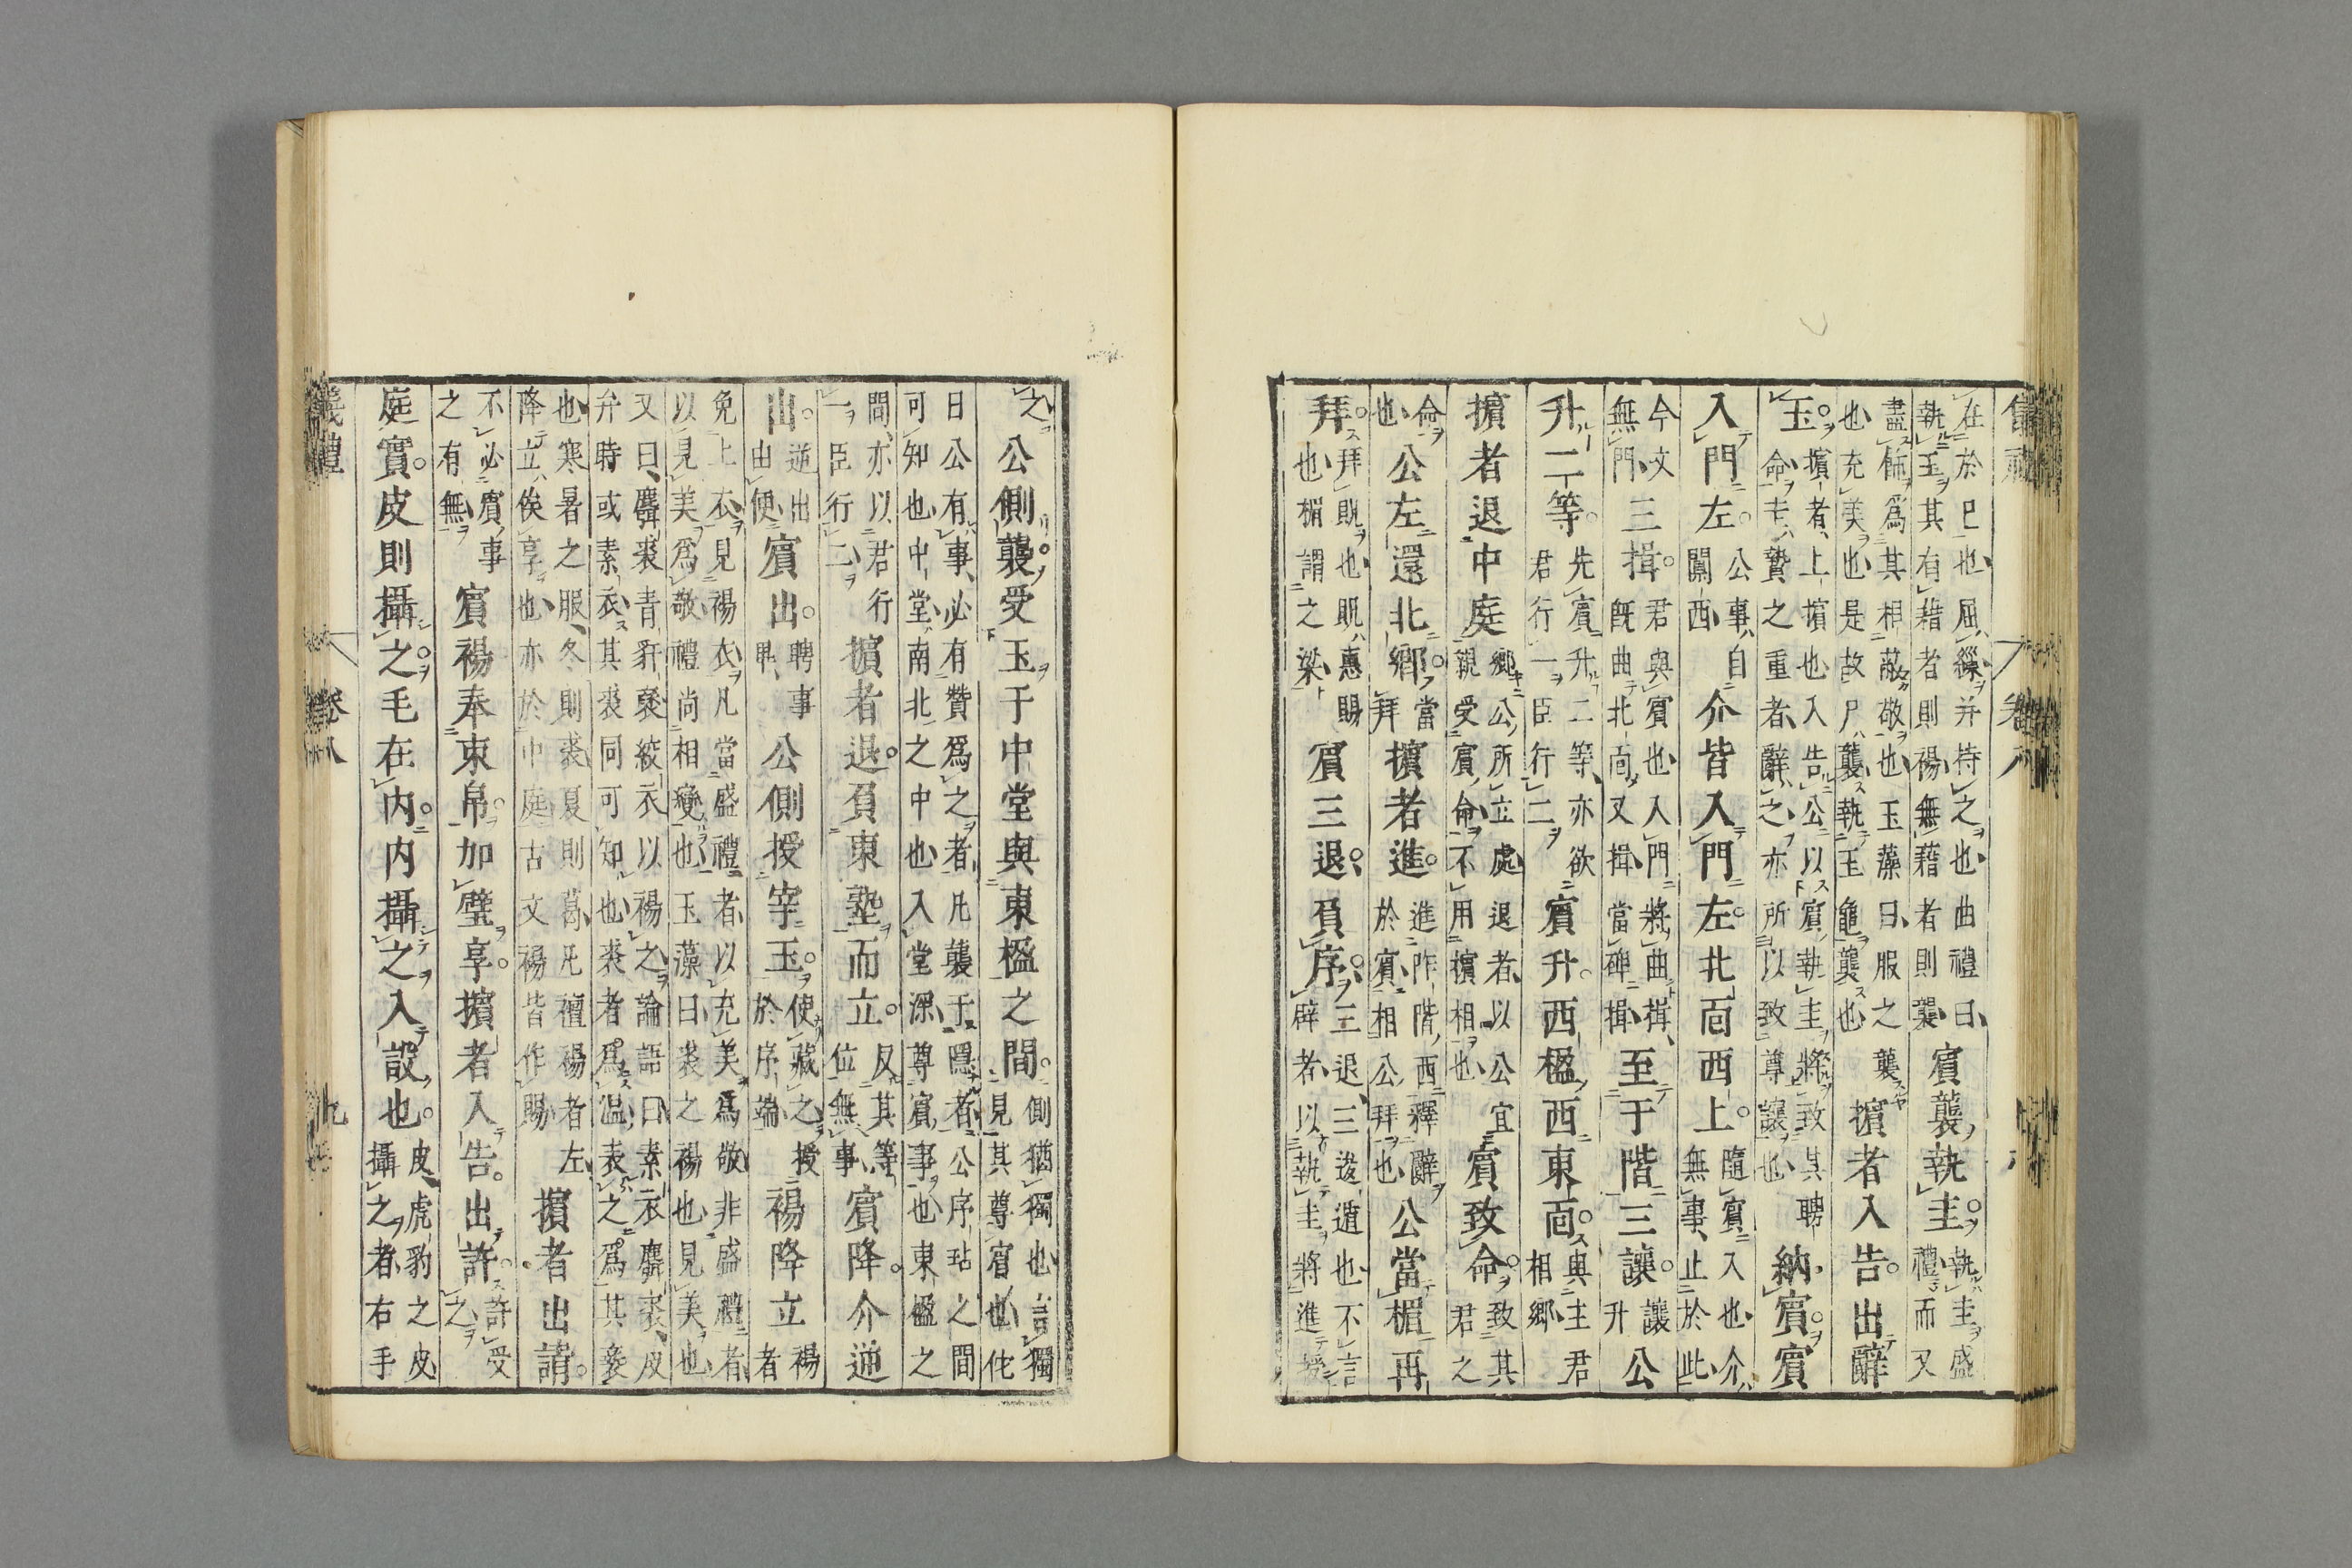 儀禮 卷八 九
在於巳也屈繅并持之也曲禮曰
執玉其有藉者則裼無藉者則襲
賔襲執圭。
執圭盛
禮而又
盡餙爲其相蔽敬也玉藻曰服之襲
也充美也是故尸襲執玉龜襲也
擯者入告。出辭
玉。
擯者上擯也入告公以賔執圭將致其聘
命圭贄之重者辭之亦所以致尊讓也
納賔。賔
入門左。
公事自
闑西
介皆入門左。北靣西上。
隨賔入也介
無事止於此
今文
無門
三揖。
君與賔也入門將曲揖
既曲北靣又揖當碑揖
至于階三讓。
讓
升
公
升二等。
先賔升二等亦欲
君行一臣行二
賔升。西楹西東靣。
與主君
相郷
擯者退中庭
郷公所立處退者以公宜
親受賔命不用擯相也
賔致命。
致其
君之
命
也
公左還北郷。
當
拜
擯者進。
進阼階西釋辭
於賔相公拜也
公當楣再
拜。
拜貺也貺惠賜
也楣謂之梁
賔三退。負序。
三退三逡遁也不言
辟者以執圭將進授
之公側襲。受玉于中堂與東楹之間。
側猶獨也言獨
見其尊賔也佗
日公有事必有贊爲之者凡襲于隱者公序坫之間
可知也中堂南北之中也入堂深尊賔事也東楹之
間亦以君行
一臣行二
擯者退。負東塾而立。
反其等
位無事
賔降。介逆
出。
逆出
由便
賔出。
聘事
畢
公側授宰玉。
使藏之授
於序端
裼降立
裼
者
免上衣見裼衣凡當盛禮者以充美爲敬非盛禮者
以見美爲敬禮尚相變也玉藻曰裘之裼也見美也
又曰麛裘青豻褎絞衣以裼之論語曰素衣麛裘皮
弁時或素衣其裘同可知也裘者爲温表之爲其褻
也寒暑之服冬則裘夏則葛凡襢裼者左
降立俟享也亦於中庭古文裼皆作賜
擯者出請。
不必賔事
之有無
賔裼奉束帛。加璧享。擯者入告。出許。
許受
之
庭實。皮則攝之。毛在内。内攝之入設也。
皮虎豹之皮
攝之者右手
儀禮 卷八 九